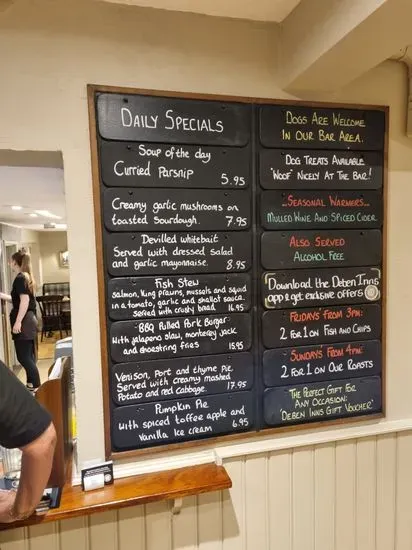 Daily Specials
Soup of the day
Curried Parsnip 5.95
Creamy garlic mushrooms on
toasted sourdough. 7.95
Devilled whitebait
Served with dressed salad
and garlic mayonnaise. 8.95
Fish Stew
Salmon, king prawns, mussels and squid
in a tomato, garlic and shallot sauce.
Served with crusty bread 16.95
BBQ Pulled Pork Burger
With jalapeno slaw, monterey jack
and shoestring fries 15.95
Venison, Port and thyme Pie.
Served with creamy mashed
Potato and red cabbage. 17.95
Pumpkin Pie
With spiced toffee apple and
Vanilla Ice cream 6.95
Dogs Are Welcome
In Our Bar Area.
Dog Treats Available
'Woof' Nicely At The Bar!
...Seasonal Warmers...
Mulled Wine And Spiced Cider
Also Served
Alcohol Free
Download the Deben Inns
app & get exclusive offers
Fridays From 3pm:
2 for 1 on Fish and Chips
Sundays From 4pm:
2 for 1 on Our Roasts
The Perfect Gift For
Any Occasion:
'Deben Inns Gift Voucher'